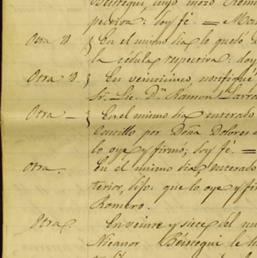 Beistegui, cuyo mozo Rom
pedirían. Soy fé. = Ma
Otra N. } En el mismo día le quedó
la cédula respectiva, doy
Otra N. } En veintiuno, notifiqué
Sr. Lic. Dn. Ramon Larra
Otra — } En el mismo día enterado
Camillo por Doña Dolores
lo oye y firmó; soy fé. =
Otra. En el mismo día, enterado
terior, dijo: que lo oye y fir
Romero.
Otra. En veinte y siete del m
Nicanor Béistegui le hi